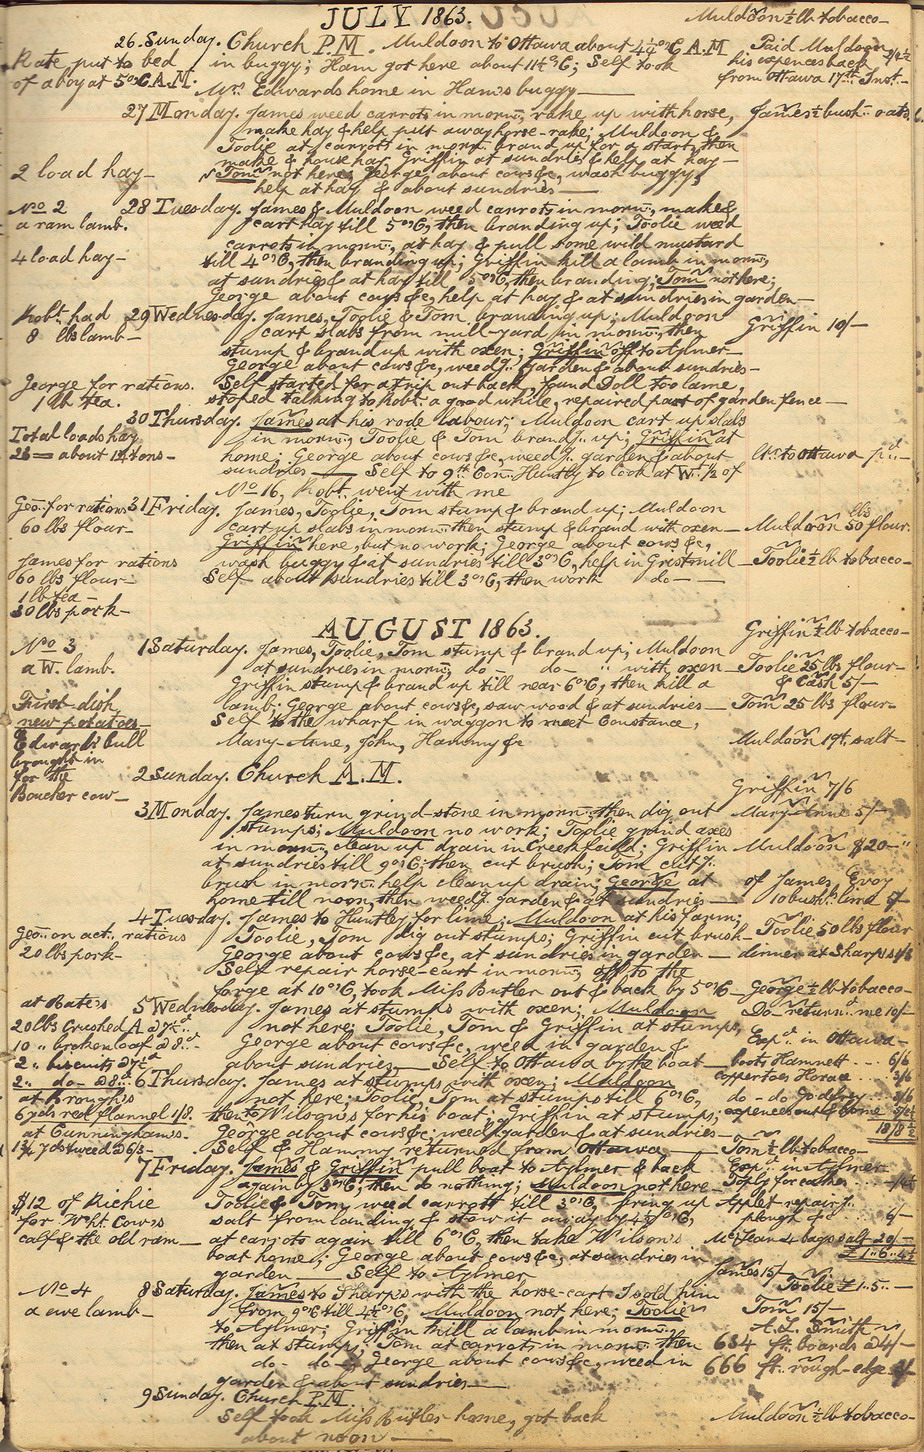 JULY 1863.
Muldoon ½ lb tobacco
26 Sunday. Church P.M. Muldoon to Ottawa about 4¼ O,C A.M
Paid Muldoon
Kate put to bed
in buggy; Ham got here about 11½ O,C; Self took
his expences back
of a boy at 5 O,C A.M.
Mrs. Edwards home in Ham's buggy
from Ottawa 17th Inst.
27 Monday. James weed carrots in morng, rake up with horse,
James ½ bush: oats.
make hay & help put away horse-rake; Muldoon &
Toolie at carrots in morng brand up for a start, then
make & house hay, Griffin at sundries & help at hay
2 load hay
Tom not here; George about cows &c, wash buggy,
help at hay & about sundries
No 2
28 Tuesday. James & Muldoon weed carrots in morng, make &
a ram lamb.
cart hay till 5 O,C, then branding up; Toolie weed
carrots in morng, at hay & pull some wild mustard
4 load hay
till 4 O,C, then branding up; Griffin kill a lamb in morng
at sundries & at hay till 5 O,C, then branding; Tom not here;
George about cows &c, help at hay & at sundries in garden
Robt. had
29 Wednesday. James, Toolie & Tom branding up; Muldoon
Griffin 10/-
8 lbs lamb
cart slabs from mill-yard in morng, then
stump & brand up with oxen; Griffin off to Aylmer
George about cows &c, weedg. garden & about sundries
George for rations.
Self started for a trip out back, found Doll too lame,
1 lb tea.
stoped talking to Robt. a good while, repaired part of garden fence
30 Thursday. James at his rode labour; Muldoon cart up slabs
Total loads hay
in morng, Toolie & Tom brandg. up; Griffin at
26 = about 12 tons
home; George about cows &c, weedg. garden & about
sundries Self to 9th Con. Huntly to look at W. ½ of
No 16, Robt. went with me
Geo. for rations
31 Friday. James, Toolie, Tom stump & brand up; Muldoon
60 lbs flour
cart up slabs in morng then stump & brand with oxen
Muldoon 50 lbs flour.
Griffin here, but no work; George about cows &c,
James for rations
wash buggy & at sundries till 3 O,C, help in Gristmill
Toolie ½ lb tobacco
60 lbs flour
Self about sundries till 3 O,C, then work do
1 lb tea
30 lbs pork
AUGUST 1863.
Griffin ½ lb tobacco
No 3
1 Saturday. James, Toolie, Tom stump & brand up; Muldoon
a W. lamb.
at sundries in morng, do do " with oxen
Toolie 25 lbs flour
Griffin stump & brand up till near 6 O,C; then kill a
& Cash 5/-
First dish
lamb; George about cows &c, saw wood & at sundries
Tom 25 lbs flour
new potatoes
Self to the wharf in waggon to meet Constance,
Edwards bull
Mary Anne, John, Hammy &c
Muldoon 19t. salt
brought in
for the
2 Sunday. Church A.M.
Boucher cow
Griffin 7/6
3 Monday. James turn grind-stone in morng then dig out
Mary Anne 5/-
stumps; Muldoon no work; Toolie grind axes
in morng, clean up drain in Creekfield; Griffin
Muldoon $20
at sundries till 9 O,C; then cut brush; Tom cutg.
brush in morng. help clean up drain; George at
of James Evoy
home till noon, then weedg. garden & at sundries
10 bush. lime
4 Tuesday. James to Huntley for lime; Muldoon at his farm;
Geo. on act. rations
Toolie, Tom dig out stumps; Griffin cut brush
Toolie 50 lbs flour
20 lbs pork
George about cows &c, at sundries in garden
dinner at Sharps 1/3
Self repair horse-cart in morng off to the
forge at 10 O,C, took Miss Butler out & back by 5 O,C
George ½ lb tobacco
at Bate's
5 Wednesday. James at stumps with oxen; Muldoon
Do returnd. me 10/-
20 lbs crushed
not here; Toolie, Tom & Griffin at stumps,
10 " broken loaf
George about cows &c, weed in garden &
Expd. in Ottawa
2 " biscuits
about sundries, Self to Ottawa by the boat
boots Hamnett 6/6
2 " do
6 Thursday. James at stumps with oxen; Muldoon
coppertoes Horace 3/6
at Brough's
not here; Toolie, Tom at stumps till 6 O,C,
do do Godfrey
6 yds red flannel 1/8.
then to Wilson's for his boat; Griffin at stumps;
expences out & home
at Cunningham's
George about cows &c; weedg. garden & at sundries
18/8½
1¾ yds tweed @ 6/3
Self & Hammy returned from Ottawa
Tom ½ lb tobacco
7 Friday. James & Griffin pull boat to Aylmer & back
Exp. in Aylmer
again by 3 O,C; then do nothing; Muldoon not here
$12 of Richie
Toolie & Tom weed carrott till 3 O,C, bring up
for Wht. Cow's
salt from landing & stow it away by 4½ O,C,
plough &c
calf & the old ram
at carrots again till 6 O,C, then take Wilson's
McLean 4 bags salt 20/-
boat home; George about cows &c, at sundries in
garden Self to Aylmer
James 15/-
No 4
8 Saturday. James to Sharps with the horse-cart I sold him
Toolie £1..5..
a ewe lamb
from 9 O,C till 4½ O,C, Muldoon not here; Toolie
Tom 15/-
to Aylmer; Griffin kill a lamb in morng.
A.L. Smith
then at stumps; Tom at carrots in morng then
634 ft. boards @ 4/-
do do; George about cows &c, weed in
666 ft. rough-edge
garden & about sundries
9 Sunday. Church P.M.
Self took Miss Butler home, got back
Muldoon ½ lb tobacco
about noon